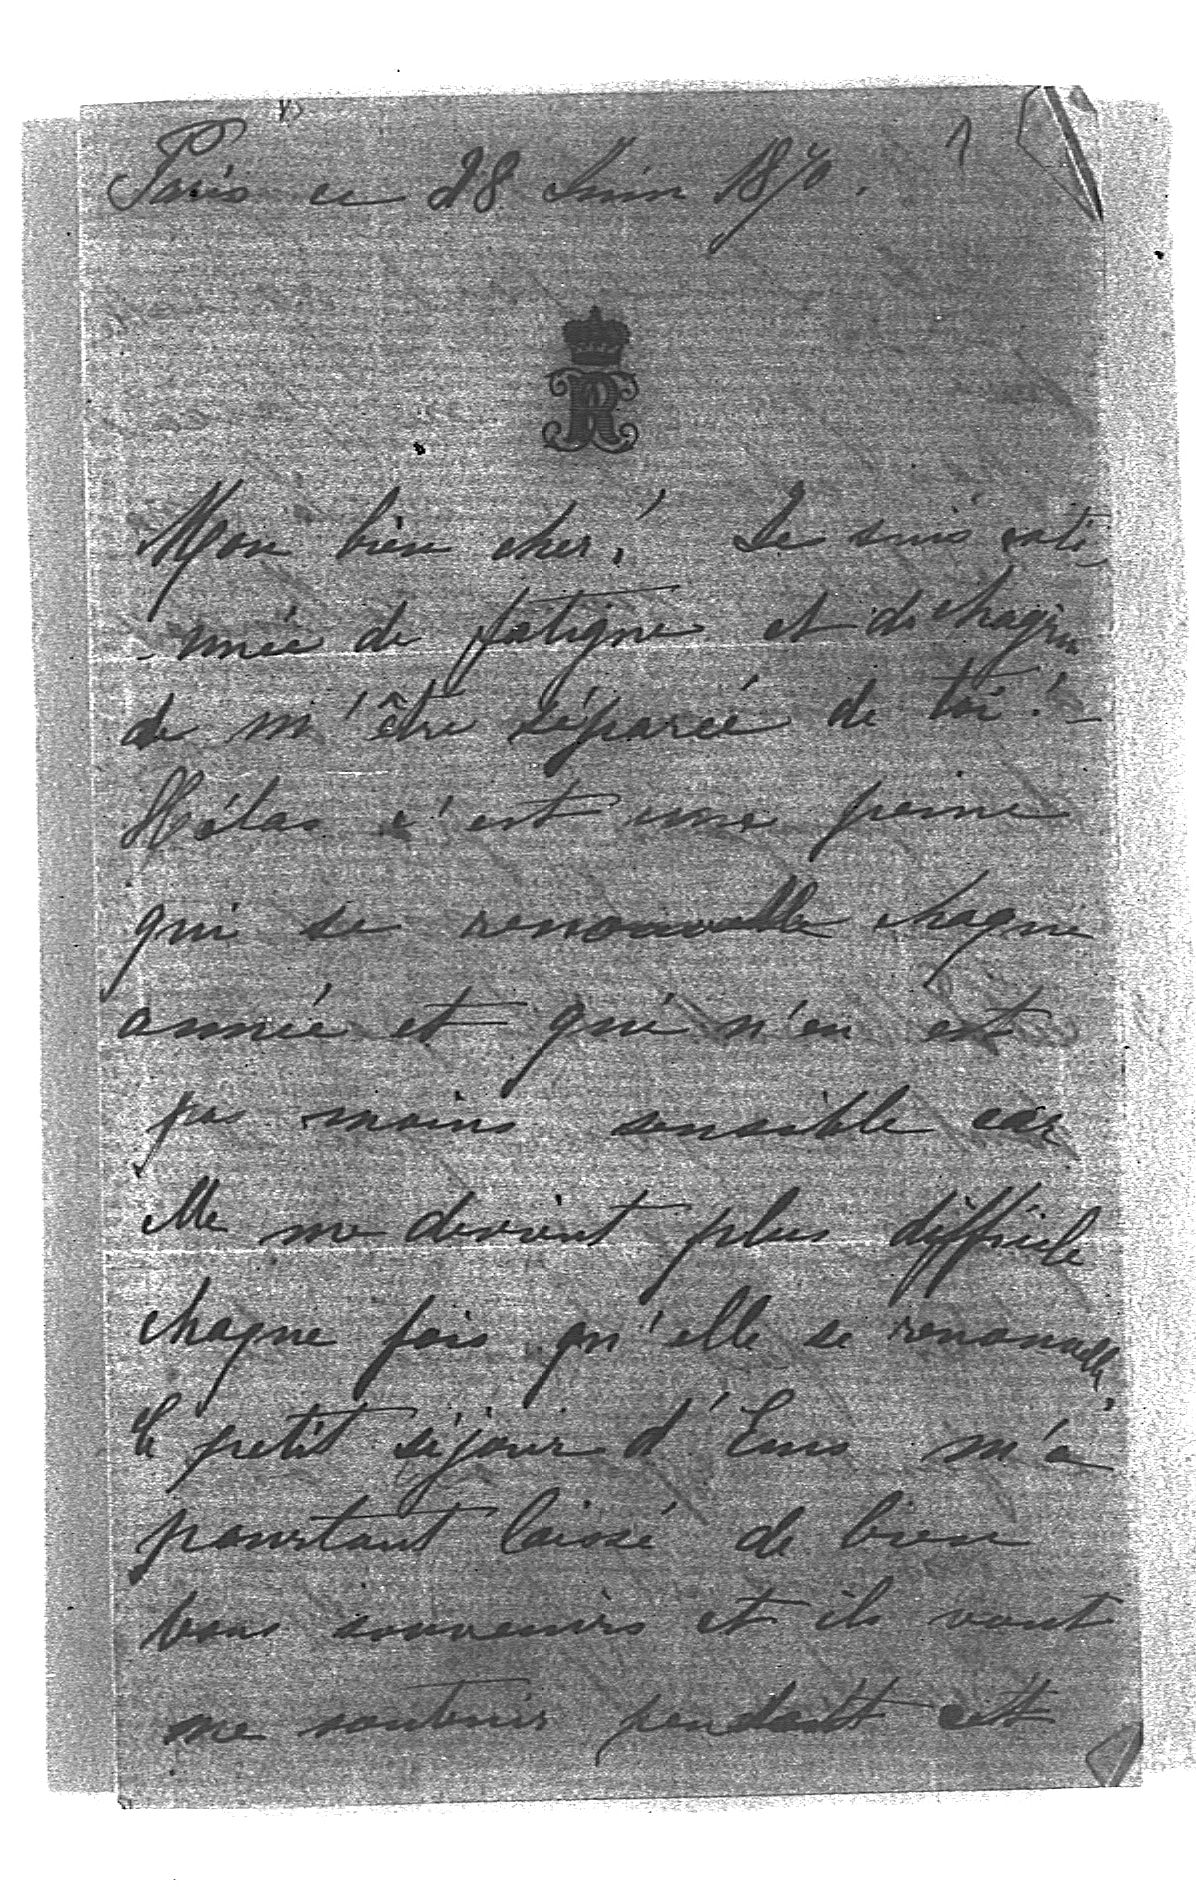 Paris ce 28 Juin 1870.
R
Mon bien cher! Je suis exté-
-nuée de fatigue et de chagrin
de m'être séparée de toi! -
Hélas c'est une peine
qui se renouvelle chaque
année et qui n'en est
pas moins sensible car
elle me devient plus difficile
chaque fois qu'elle se renouvelle,
le petit séjour d'Ems m'a
pourtant laissé de bien
bons souvenirs et ils vont
me soutenir pendant cet